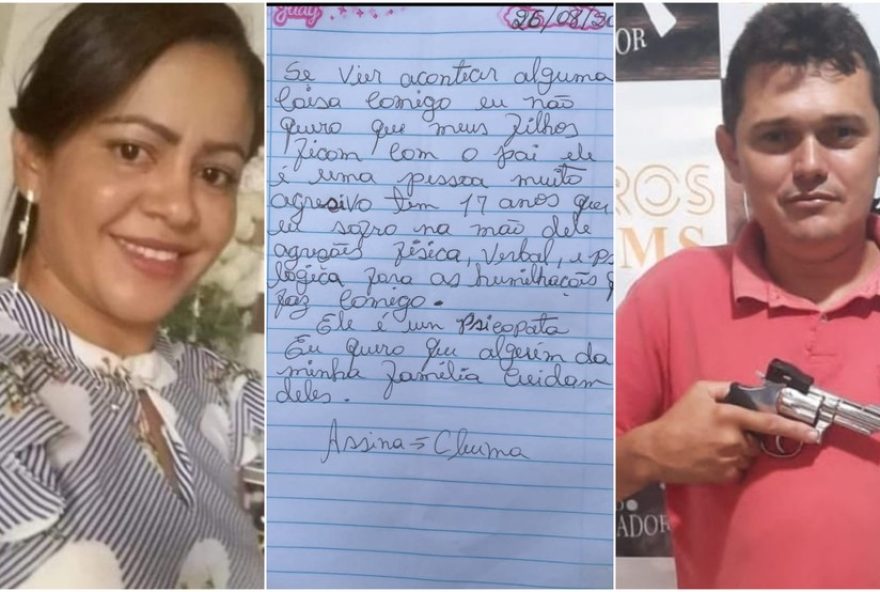 25/08/20
Se vier acontecer alguma
Coisa comigo eu não
quero que meus filhos
ficam com o pai ele
é uma pessoa muito
agresivo tem 17 anos que
eu sofro na mão dele
agreções física, verbal, e ps
lógica fora as humilhações q
faz comigo.
Ele é um Psicopata
Eu quero que alguém da
minha família cuidam
deles.
Assina = Cleuma
OR
ROS
MS
ADOR